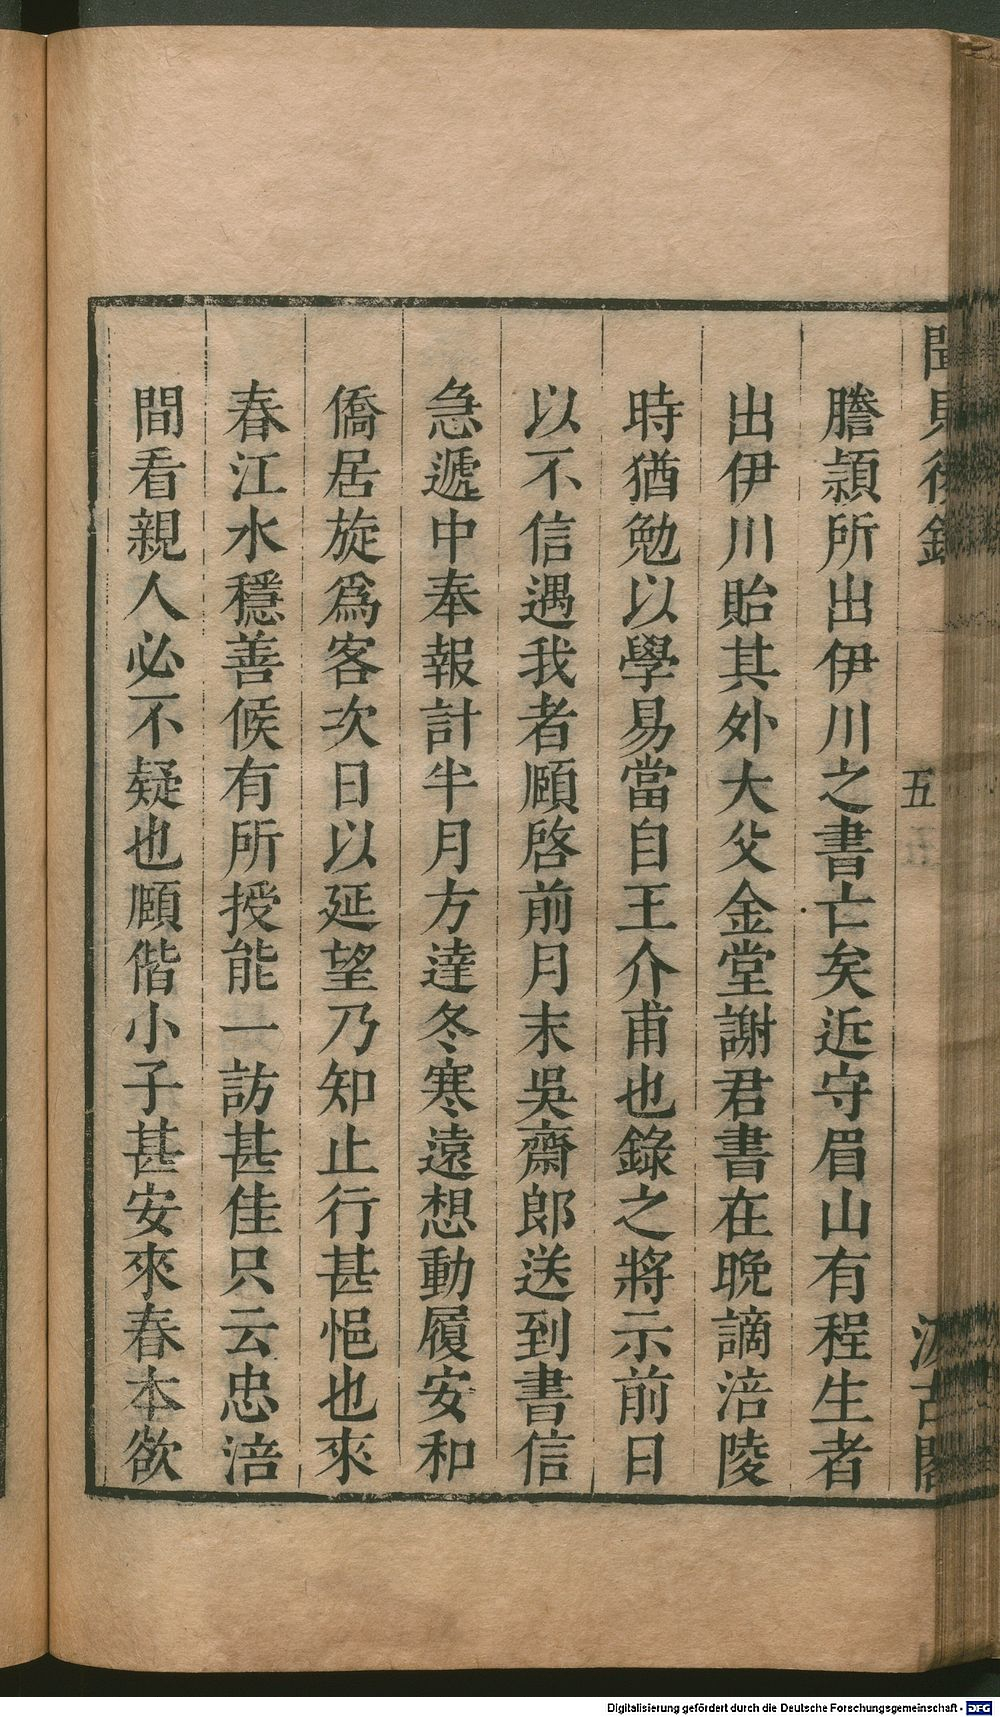 聞見後錄
五
汲古閣
謄頴所出伊川之書亡矣近守眉山有程生者
出伊川貽其外大父金堂謝君書在晚謫涪陵
時猶勉以學易當自王介甫也錄之將示前日
以不信遇我者頋啓前月末吳齋郎送到書信
急遞中奉報計半月方達冬寒遠想動履安和
僑居旋爲客次日以延望乃知止行甚悒也來
春江水穩善候有所授能一訪甚佳只云忠涪
間看親人必不疑也頋偕小子甚安來春本欲
Digitalisierung gefördert durch die Deutsche Forschungsgemeinschaft - DFG